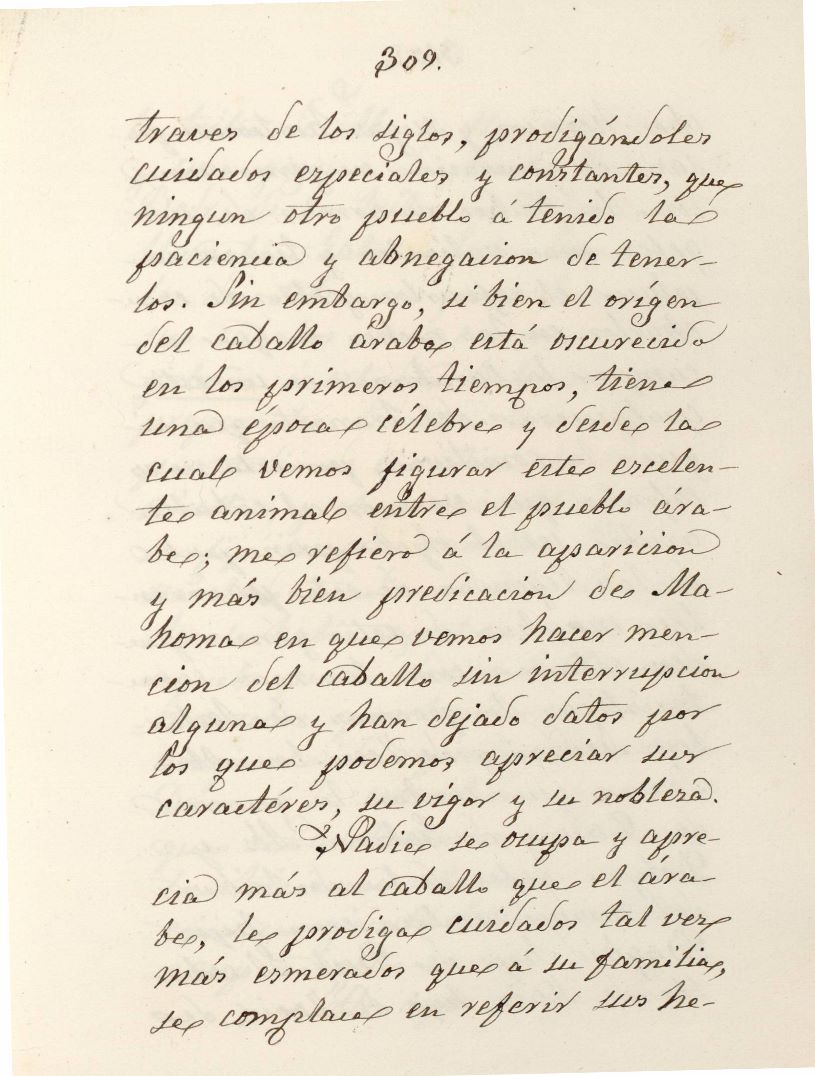 309.
traves de los siglos, prodigándoles
cuidados especiales y constantes, que
ningun otro pueblo á tenido la
paciencia y abnegacion de tener-
los. Sin embargo, si bien el orígen
del caballo árabe está oscurecido
en los primeros tiempos, tiene
una época célebre y desde la
cual vemos figurar este escelen-
te animal entre el pueblo ára-
be; me refiero á la aparicion
y más bien predicacion de Ma-
homa en que vemos hacer men-
cion del caballo sin interrupcion
alguna y han dejado datos por
los que podemos apreciar sus
caractéres, su vigor y su nobleza.
Nadie se ocupa y apre-
cia más al caballo que el ára-
be, le prodiga cuidados tal vez
más esmerados que á su familia,
se complace en referir sus he-